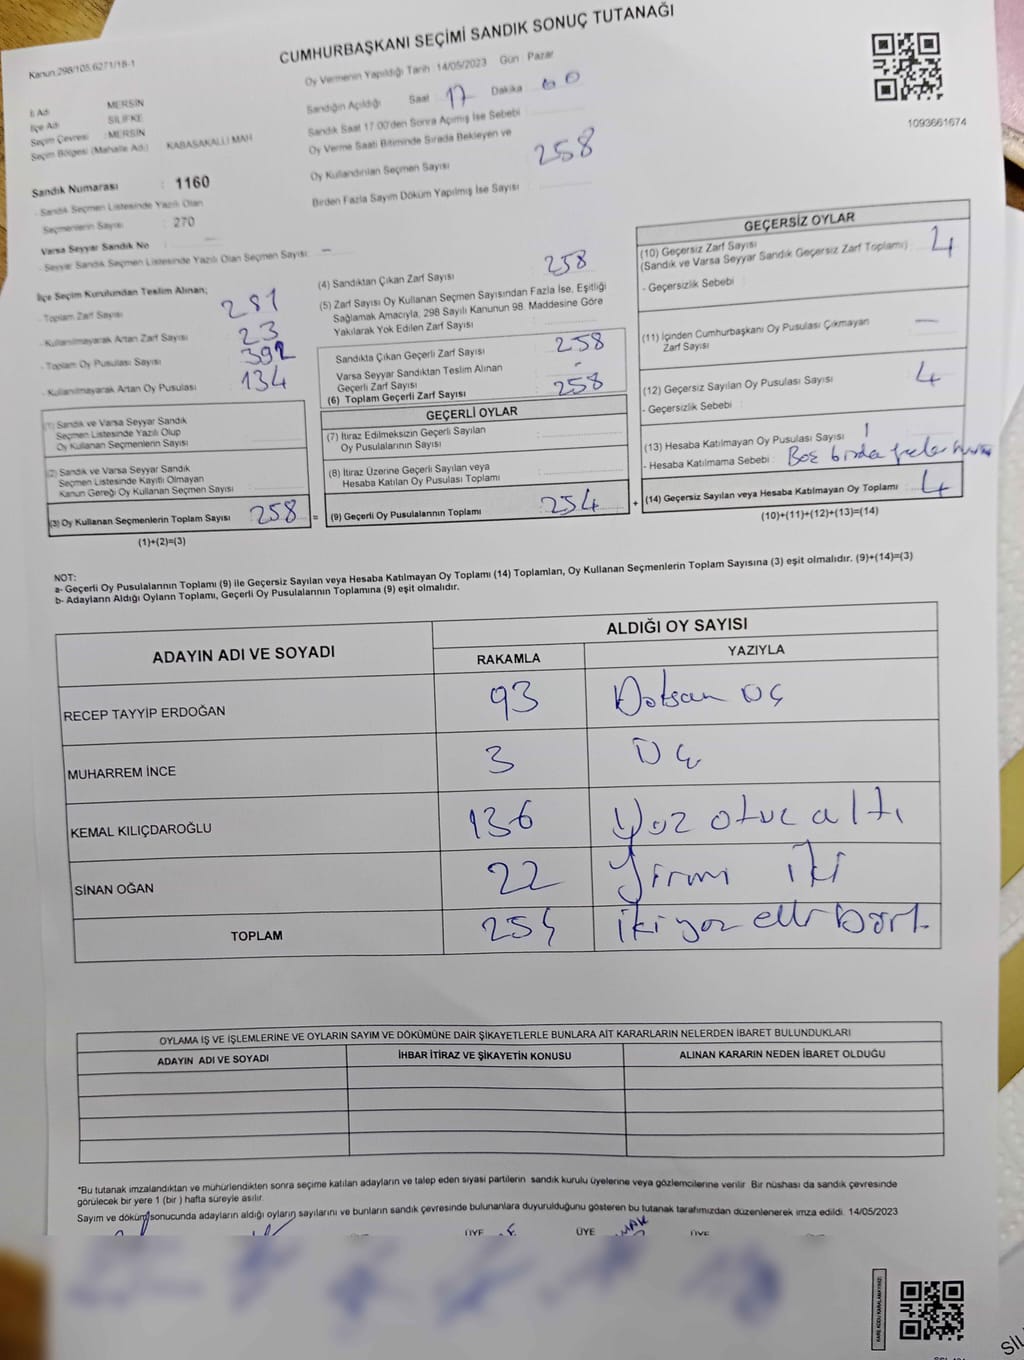 CUMHURBAŞKANI SEÇİMİ SANDIK SONUÇ TUTANAĞI
Kanun:298/105,6271/18-1
Oy Vermenin Yapıldığı Tarih :14/05/2023 Gün : Pazar
İl Adı : MERSİN
İlçe Adı : SİLİFKE
Seçim Çevresi : MERSİN
Seçim Bölgesi (Mahalle Adı) : KABASAKALLI MAH
Sandığın Açıldığı Saat 17 Dakika 00
Sandık Saat 17:00'den Sonra Açımış İse Sebebi
Oy Verme Saati Bitiminde Sırada Bekleyen ve
Oy Kullandırılan Seçmen Sayısı 258
Birden Fazla Sayım Döküm Yapılmış İse Sayısı
1093661674
Sandık Numarası : 1160
- Sandık Seçmen Listesinde Yazılı Olan
Seçmenlerin Sayısı : 270
Varsa Seyyar Sandık No : —
- Seyyar Sandık Seçmen Listesinde Yazılı Olan Seçmen Sayısı: –
İlçe Seçim Kurulundan Teslim Alınan;
- Toplam Zarf Sayısı 281
- Kullanılmayarak Artan Zarf Sayısı 23
- Toplam Oy Pusulası Sayısı 392
- Kullanılmayarak Artan Oy Pusulası 134
(1) Sandık ve Varsa Seyyar Sandık
Seçmen Listesinde Yazılı Olup
Oy Kullanan Seçmenlerin Sayısı
(2) Sandık ve Varsa Seyyar Sandık
Seçmen Listesinde Kayıtlı Olmayan
Kanun Gereği Oy Kullanan Seçmen Sayısı
(3) Oy Kullanan Seçmenlerin Toplam Sayısı 258 =
(1)+(2)=(3)
(4) Sandıktan Çıkan Zarf Sayısı 258
(5) Zarf Sayısı Oy Kullanan Seçmen Sayısından Fazla İse, Eşitliği
Sağlamak Amacıyla, 298 Sayılı Kanunun 98. Maddesine Göre
Yakılarak Yok Edilen Zarf Sayısı
Sandıkta Çıkan Geçerli Zarf Sayısı : 258
Varsa Seyyar Sandıktan Teslim Alınan
Geçerli Zarf Sayısı : -
(6) Toplam Geçerli Zarf Sayısı : 258
GEÇERLİ OYLAR
(7) İtiraz Edilmeksizin Geçerli Sayılan
Oy Pusulalarının Sayısı :
(8) İtiraz Üzerine Geçerli Sayılan veya
Hesaba Katılan Oy Pusulası Toplamı :
(9) Geçerli Oy Pusulalarının Toplamı : 254 +
GEÇERSİZ OYLAR
(10) Geçersiz Zarf Sayısı
(Sandık ve Varsa Seyyar Sandık Geçersiz Zarf Toplamı) : 4
- Geçersizlik Sebebi :
(11) İçinden Cumhurbaşkanı Oy Pusulası Çıkmayan
Zarf Sayısı : —
(12) Geçersiz Sayılan Oy Pusulası Sayısı : 4
- Geçersizlik Sebebi :
(13) Hesaba Katılmayan Oy Pusulası Sayısı :
- Hesaba Katılmama Sebebi : Boş birden
(14) Geçersiz Sayılan veya Hesaba Katılmayan Oy Toplamı : 4
(10)+(11)+(12)+(13)=(14)
NOT:
a- Geçerli Oy Pusulalarının Toplamı (9) ile Geçersiz Sayılan veya Hesaba Katılmayan Oy Toplamı (14) Toplamları, Oy Kullanan Seçmenlerin Toplam Sayısına (3) eşit olmalıdır. (9)+(14)=(3)
b- Adayların Aldığı Oyların Toplamı, Geçerli Oy Pusulalarının Toplamına (9) eşit olmalıdır.
ADAYIN ADI VE SOYADI
ALDIĞI OY SAYISI
RAKAMLA YAZIYLA
RECEP TAYYİP ERDOĞAN 93 Doksan Üç
MUHARREM İNCE 3 Üç
KEMAL KILIÇDAROĞLU 136 Yüz otuz altı
SİNAN OĞAN 22 Yirmi iki
TOPLAM 254 iki yüz elli Dört.
OYLAMA İŞ VE İŞLEMLERİNE VE OYLARIN SAYIM VE DÖKÜMÜNE DAİR ŞİKAYETLERLE BUNLARA AİT KARARLARIN NELERDEN İBARET BULUNDUKLARI
ADAYIN ADI VE SOYADI İHBAR İTİRAZ VE ŞİKAYETİN KONUSU ALINAN KARARIN NEDEN İBARET OLDUĞU
*Bu tutanak imzalandıktan ve mühürlendikten sonra seçime katılan adayların ve talep eden siyasi partilerin sandık kurulu üyelerine veya gözlemcilerine verilir. Bir nüshası da sandık çevresinde
görülecek bir yere 1 (bir ) hafta süreyle asılır.
Sayım ve döküm sonucunda adayların aldığı oyların sayılarını ve bunların sandık çevresinde bulunanlara duyurulduğunu gösteren bu tutanak tarafımızdan düzenlenerek imza edildi. 14/05/2023
ÜYE ÜYE ÜYE